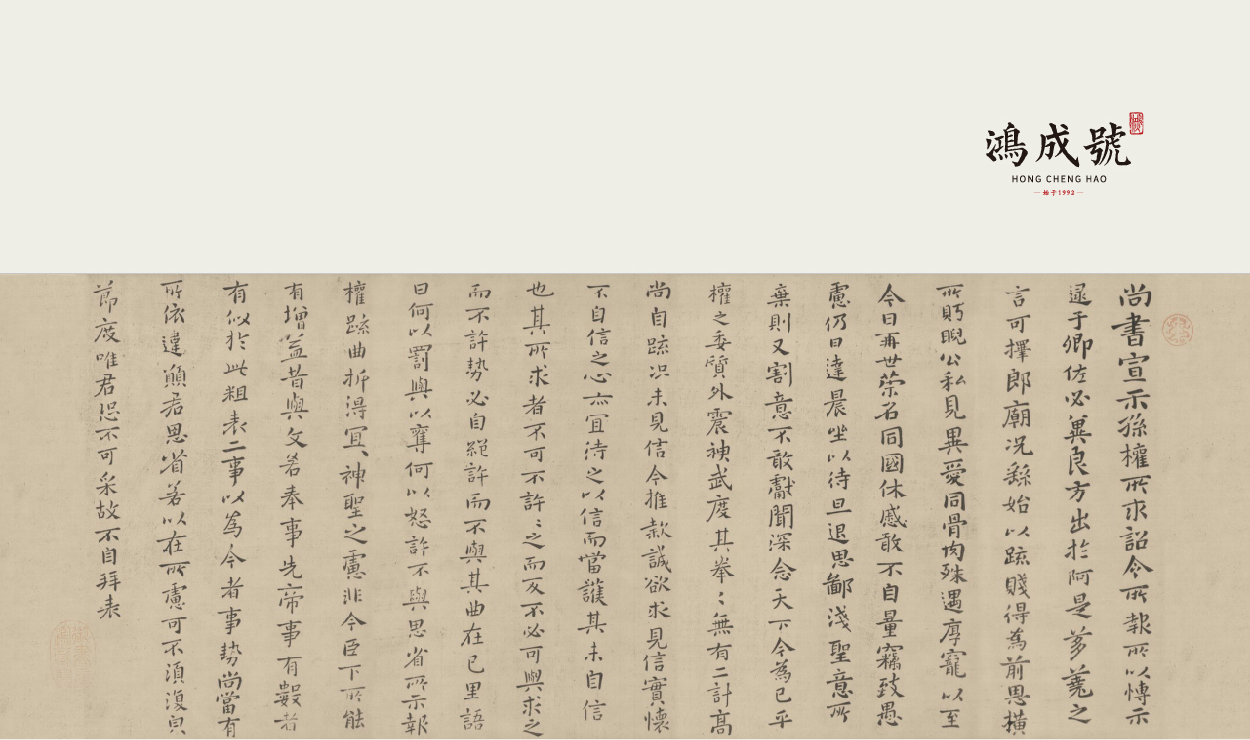 鴻成號
HONG CHENG HAO
始于1992
尚書宣示孫權所求詔令所報所以博示
逮于卿佐必冀良方出於阿是芻蕘之
言可擇郎廟況繇始以疏賤得為前恩橫
所眄睨公私見異愛同骨肉殊遇厚寵以至
今日再世榮名同國休慼敢不自量竊致愚
慮仍日達晨坐以待旦退思鄙淺聖意所
棄則又割意不敢獻聞深念天下今為已平
權之委質外震神武度其拳〻無有二計高
尚自疏況未見信今推款誠欲求見信實懷
不自信之心亦宜待之以信而當護其未自信
也其所求者不可不許〻之而反不必可與求之
而不許勢必自絕許而不與其曲在己里語
曰何以罰與以奪何以怒許不與思省所示報
權疏曲折得宜神聖之慮非今臣下所能
有增益昔與文若奉事先帝事有數者
有似於此粗表二事以為今者事勢尚當有
所依違願君思省若以在所慮可不須復貌
節度唯君恐不可采故不自拜表